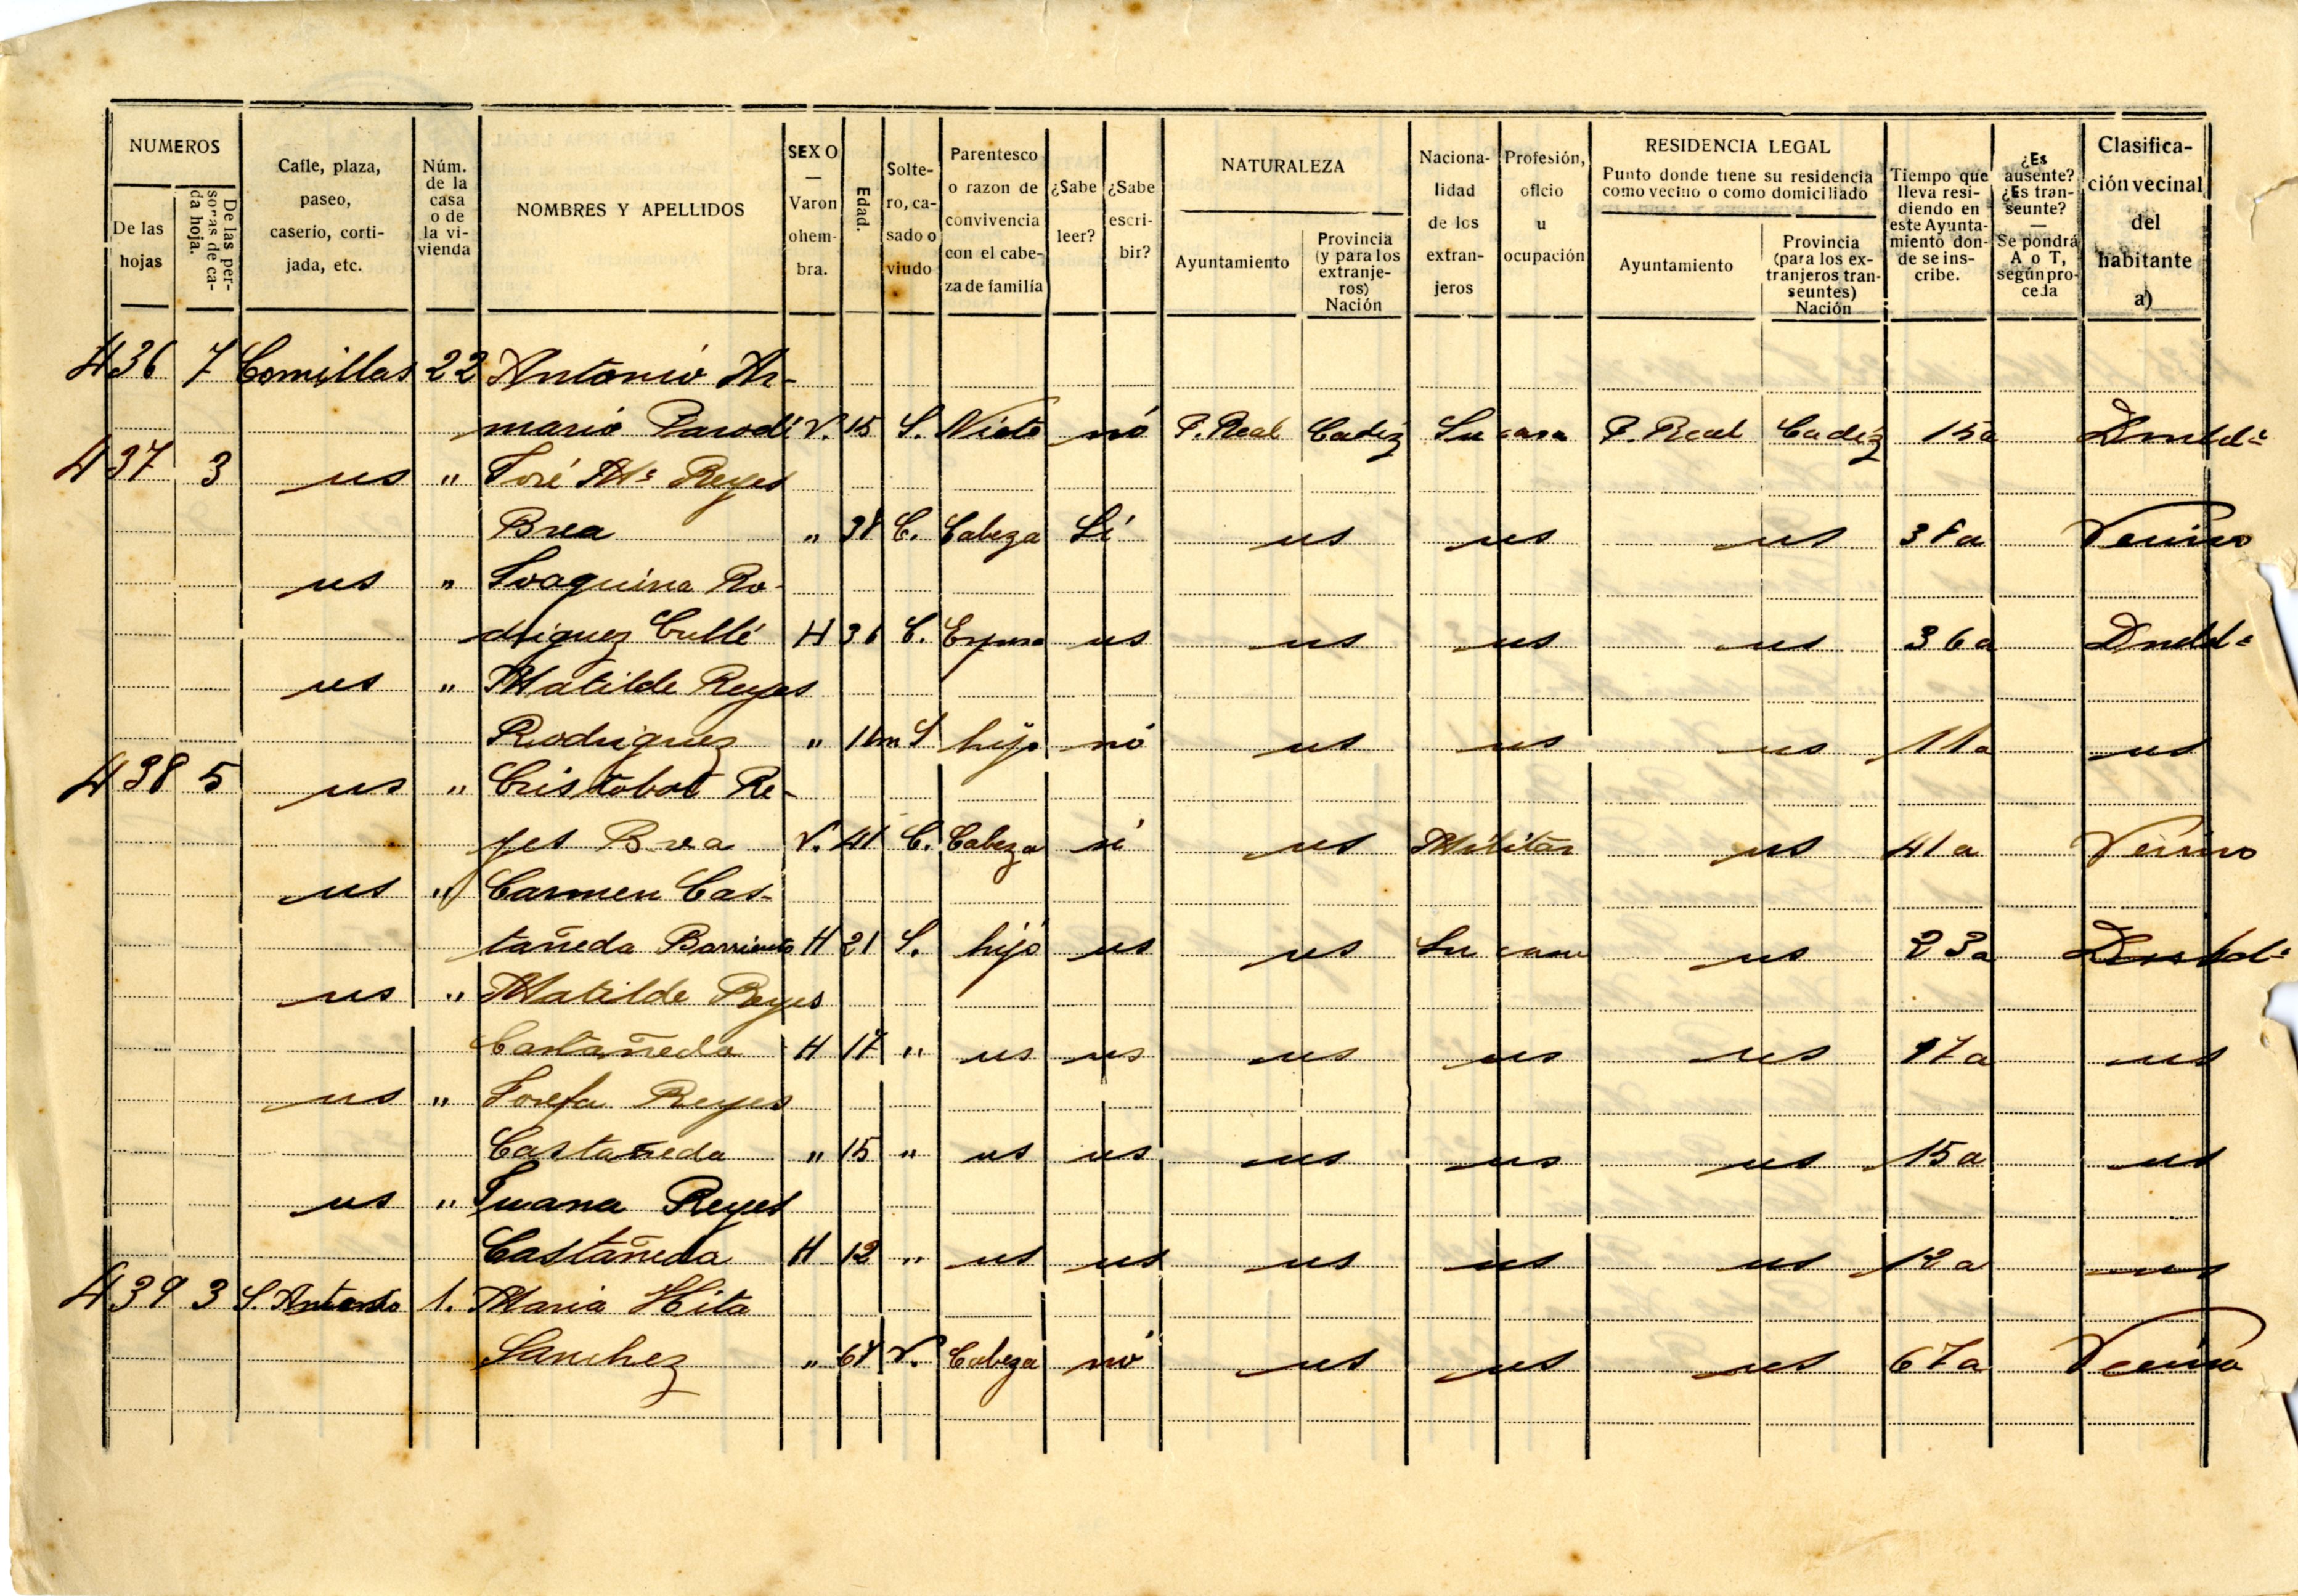 NUMEROS
De las hojas
De las personas de cada hoja.
Calle, plaza, paseo, caserio, cortijada, etc.
Núm. de la casa o de la vivienda
NOMBRES Y APELLIDOS
SEXO — Varon o hembra.
Edad.
Soltero, casado o viudo
Parentesco o razon de convivencia con el cabeza de familia
¿Sabe leer?
¿Sabe escribir?
NATURALEZA
Ayuntamiento
Provincia (y para los extranjeros) Nación
Nacionalidad de los extranjeros
Profesión, oficio u ocupación
RESIDENCIA LEGAL
Punto donde tiene su residencia como vecino o como domiciliado
Ayuntamiento
Provincia (para los extranjeros transeuntes) Nación
Tiempo que lleva residiendo en este Ayuntamiento donde se inscribe.
¿Es ausente? ¿Es transeunte? — Se pondrá A o T, según proceda
Clasificación vecinal del habitante a)
436 7 Comillas 22 Antonio Ar-
mario Parodi V. 15 S. Nieto nó P. Real Cadiz Su casa P. Real Cadiz 15a
437 3 us " José Mª Reyes
Brea " 38 C. Cabeza Sí us us us 38a Vecino
us " Joaquina Ro-
driguez Cullé H 36 C. Esposa us us us us 36a
us " Matilde Reyes
Rodriguez " S hija nó us us us 11a us
438 5 us " Cristobal Re-
yes Brea V. 41 C. Cabeza sí us Militar us 41a Vecino
us " Carmen Cas-
tañeda Barrientos H 21 S. hija us us Su casa us 23a
us " Matilde Reyes
Castañeda H 17 " us us us us us 17a us
us " Josefa Reyes
Castañeda " 15 " us us us us us 15a us
us " Juana Reyes
Castañeda H 12 " us us us us us 12a us
439 3 S. Antonio 1. Maria Hita
Sanchez " V. Cabeza nó us us us 67a Vecina